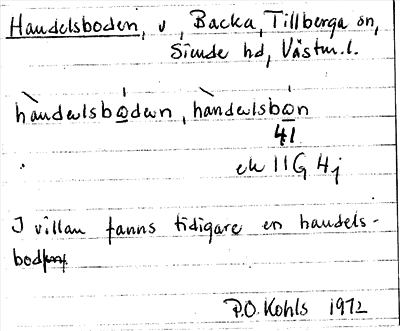 Handelsboden, v, Backa, Tillberga sn,
Siende hd, Västm.l.
hàndəlsbó̲dən, hàndəlsbó̲n
41
ek 11G 4j
I villan fanns tidigare en handels-
bod
P.O. Kohls 1972